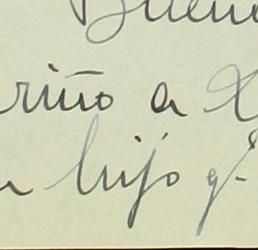 Buen
riño a
hijo q.